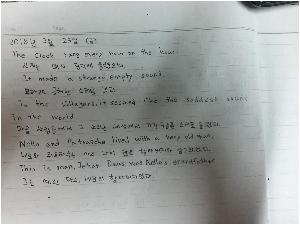 2018년 3월 23일 (금)
The clock rang every hour on the hour.
시계는 매시 정각에 울렸다.
It made a strange, empty sound.
소리를 냈다.
To the villagers, it seemed like the saddest sound
in the world
그 소리는 세상에서 가장 슬픈 소리로 들렸다.
Nello and Patrasche lived with a very old man.
넬로와 파트라슈는 나이 많은 할아버지와 살았다.
This is man, Jehan Daas was Nello's grandfather
넬로의 할아버지였다.